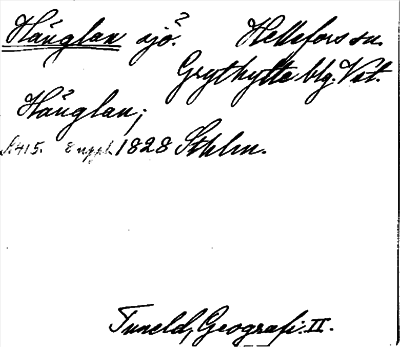 Häuglan sjö?. Hellefors sn.
Grythytte blg. Vstm.
Häuglan;
s. 415. 8 uppl. 1828 Sthlm.
Tuneld, Geografi. II.